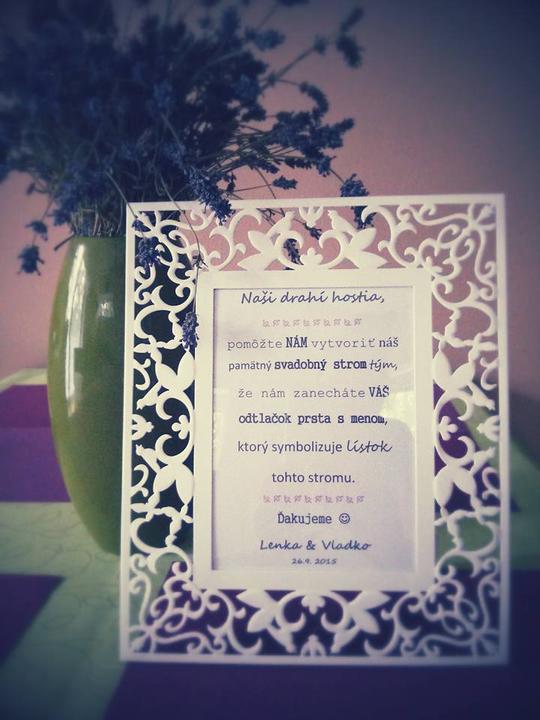 Naši drahí hostia,
pomôžte NÁM vytvoriť náš
pamätný svadobný strom tým,
že nám zanecháte VÁŠ
odtlačok prsta s menom,
ktorý symbolizuje lístok
tohto stromu.
Ďakujeme ☺
Lenka & Vladko
26.9. 2015